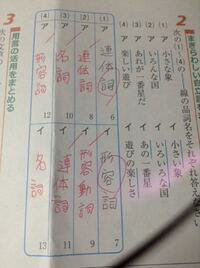 2 まぎらわしい
次の(1)~(4)の 線の品詞名をそれぞれ答えなさ
(1) ア 小さな象 イ 小さい象
(2) ア いろんな国 イ いろいろな国
(3) ア あれが一番星だ イ あの一番星
(4) ア 楽しい遊び イ 遊びの楽しさ
(1) ア 連体詞 6 イ 形容詞 7
(2) ア 連体詞 8 イ 形容動詞 9
(3) ア 名詞 10 イ 連体詞 11
(4) ア 形容詞 12 イ 名詞 13
3 用言の活用をまとめる
次の文